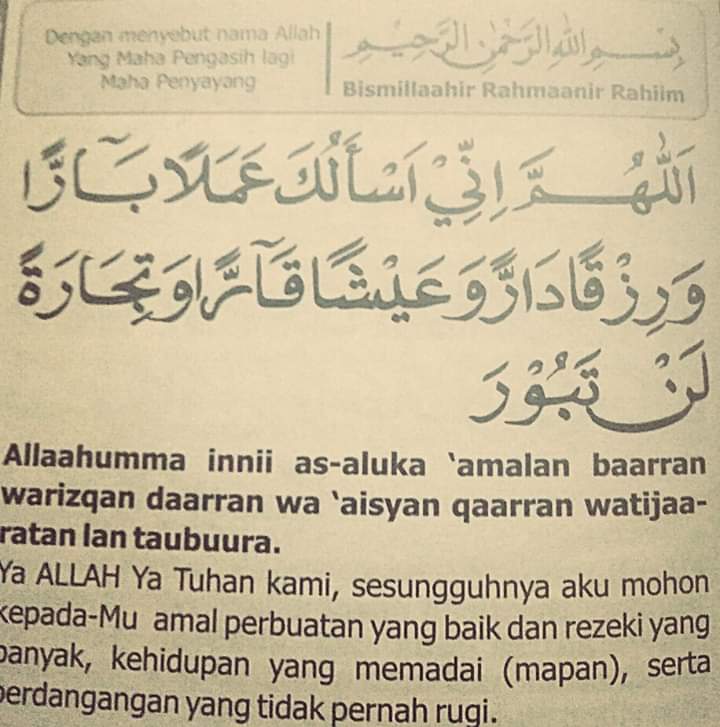 Dengan menyebut nama Allah
Yang Maha Pengasih lagi
Maha Penyayang
بِسْمِ اللهِ الرَّحْمٰنِ الرَّحِيْمِ
Bismillaahir Rahmaanir Rahiim
اَللّٰهُمَّ اِنِّيْ اَسْأَلُكَ عَمَلًا بَآرًّا
وَرِزْقًا دَارًّا وَعَيْشًا قَآرًّا وَتِجَارَةً
لَنْ تَبُوْرَ
Allaahumma innii as-aluka ‘amalan baarran
warizqan daarran wa ‘aisyan qaarran watijaa-
ratan lan taubuura.
Ya ALLAH Ya Tuhan kami, sesungguhnya aku mohon
kepada-Mu amal perbuatan yang baik dan rezeki yang
banyak, kehidupan yang memadai (mapan), serta
perdangangan yang tidak pernah rugi.